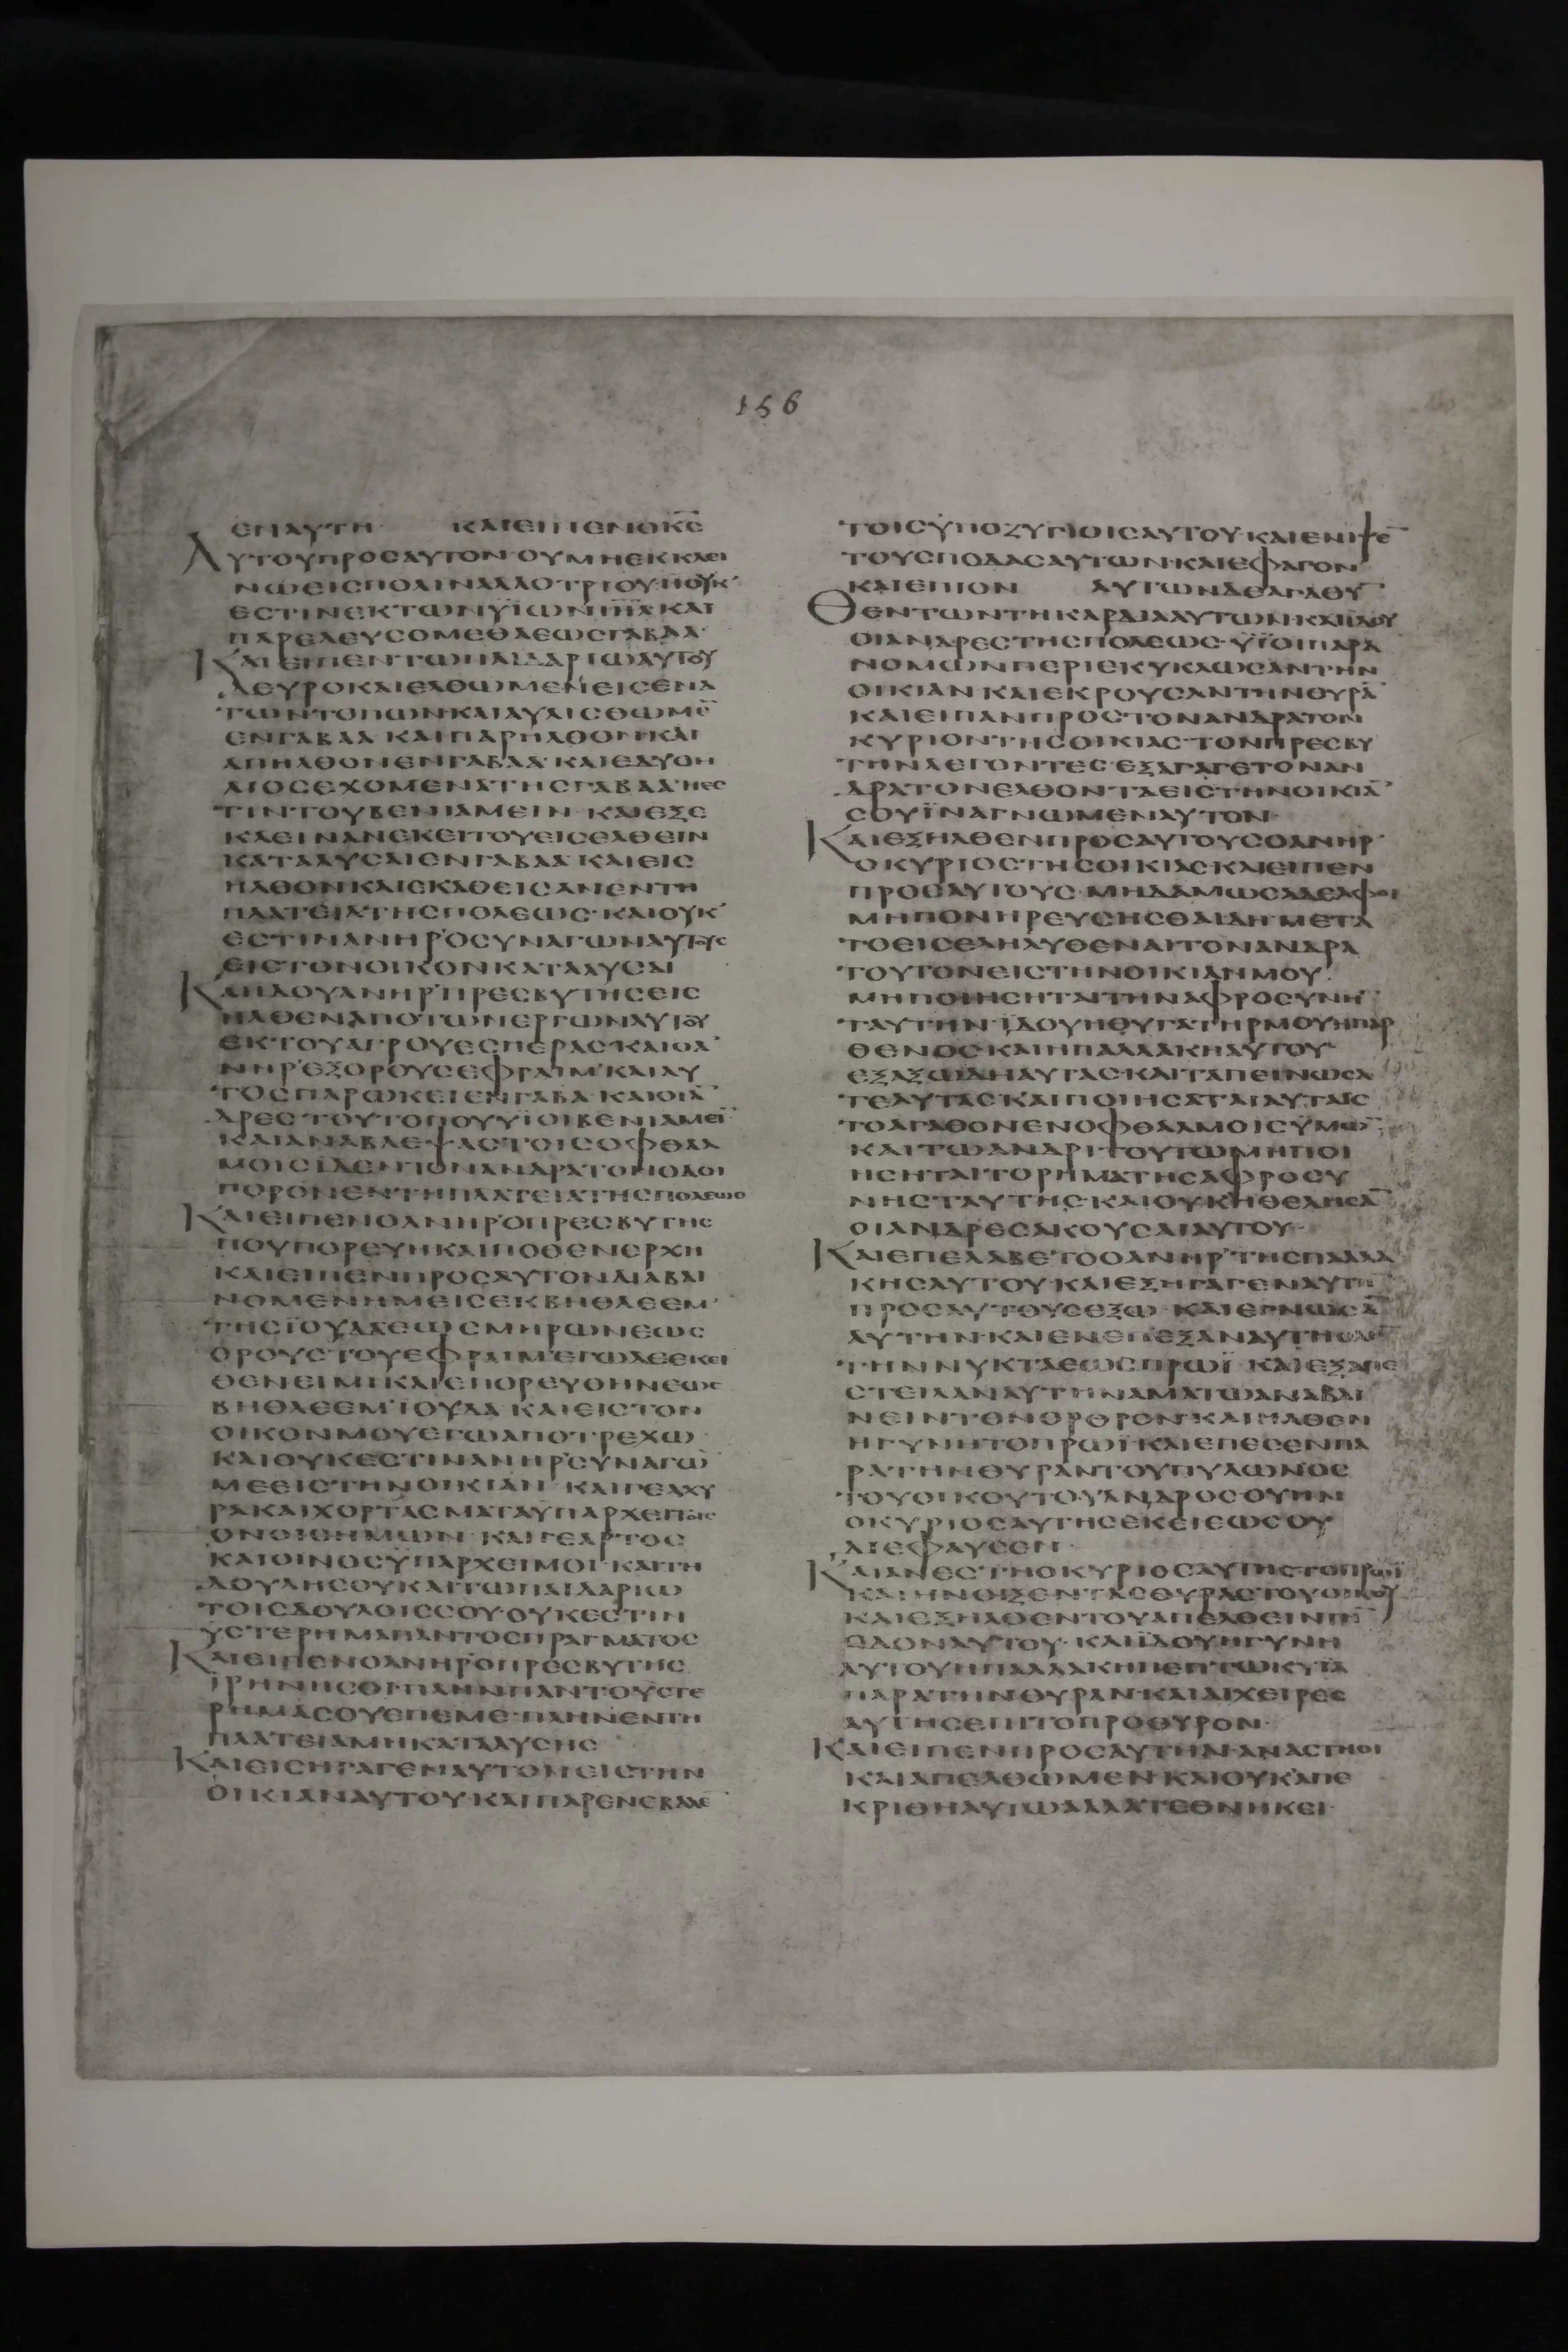 156
ΕΝΑΥΤΗ· ΚΑΙΕΙΠΕΝΟΚ̅Ϲ̅
ΑΥΤΟΥΠΡΟϹΑΥΤΟΝ·ΟΥΜΗΕΚΚΛΕΙ
ΝΩΕΙϹΠΟΛΙΝΑΛΛΟΤΡΙΟΥ·ΗΟΥΚ
ΕϹΤΙΝΕΚΤΩΝΫΙΩΝΙ̅Η̅Λ̅ΚΑΙ
ΠΑΡΕΛΕΥϹΟΜΕΘΑΕΩϹΓΑΒΑΑ·
ΚΑΙΕΙΠΕΝΤΩΠΑΙΔΑΡΙΩΑΥΤΟΥ
ΔΕΥΡΟΚΑΙΕΛΘΩΜΕΝΕΙϹΕΝΑ
ΤΩΝΤΟΠΩΝΚΑΙΑΥΛΙϹΘΩΜΕ̅
ΕΝΓΑΒΑΑ·ΚΑΙΠΑΡΗΛΘΟΝΚΑΙ
ΑΠΗΛΘΟΝΕΝΓΑΒΑΑ·ΚΑΙΕΔΥΟΗ
ΛΙΟϹΕΧΟΜΕΝΑΤΗϹΓΑΒΑΑ·ΗΕϹ
ΤΙΝΤΟΥΒΕΝΙΑΜΕΙΝ·ΚΑΙΕΞΕ
ΚΛΕΙΝΑΝΕΚΕΙΤΟΥΕΙϹΕΛΘΕΙΝ
ΚΑΤΑΛΥϹΑΙΕΝΓΑΒΑΑ·ΚΑΙΕΙϹ
ΗΛΘΟΝΚΑΙΕΚΑΘΕΙϹΑΝΕΝΤΗ
ΠΛΑΤΕΙΑΤΗϹΠΟΛΕΩϹ·ΚΑΙΟΥΚ
ΕϹΤΙΝΑΝΗΡΟϹΥΝΑΓΩΝΑΥΤΟΥϹ
ΕΙϹΤΟΝΟΙΚΟΝΚΑΤΑΛΥϹΑΙ
ΚΑΙΙΔΟΥΑΝΗΡΠΡΕϹΒΥΤΗϹΕΙϹ
ΗΛΘΕΝΑΠΟΤΩΝΕΡΓΩΝΑΥΤΟΥ
ΕΚΤΟΥΑΓΡΟΥΕϹΠΕΡΑϹ·ΚΑΙΟΑ
ΝΗΡΕΞΟΡΟΥϹΕΦΡΑΙΜ·ΚΑΙΑΥ
ΤΟϹΠΑΡΩΚΕΙΕΝΓΑΒΑ·ΚΑΙΟΙΑ̅
ΔΡΕϹΤΟΥΤΟΠΟΥΥΙΟΙΒΕΝΙΑΜΕΙ̅
ΚΑΙΑΝΑΒΛΕΨΑϹΤΟΙϹΟΦΘΑΛ
ΜΟΙϹΙΔΕΝΤΟΝΑΝΔΡΑΤΟΝΟΔΟΙ
ΠΟΡΟΝΕΝΤΗΠΛΑΤΕΙΑΤΗϹΠΟΛΕΩϹ
ΚΑΙΕΙΠΕΝΟΑΝΗΡΟΠΡΕϹΒΥΤΗϹ
ΠΟΥΠΟΡΕΥΗΚΑΙΠΟΘΕΝΕΡΧΗ
ΚΑΙΕΙΠΕΝΠΡΟϹΑΥΤΟΝΔΙΑΒΑΙ
ΝΟΜΕΝΗΜΕΙϹΕΚΒΗΘΛΕΕΜ
ΤΗϹΪΟΥΔΑΕΩϹΜΗΡΩΝΕΩϹ
ΟΡΟΥϹΤΟΥΕΦΡΑΙΜ·ΕΓΩΔΕΕΚΕΙ
ΘΕΝΕΙΜΙ·ΚΑΙΕΠΟΡΕΥΘΗΝΕΩϹ
ΒΗΘΛΕΕΜΪΟΥΔΑ·ΚΑΙΕΙϹΤΟΝ
ΟΙΚΟΝΜΟΥΕΓΩΑΠΟΤΡΕΧΩ
ΚΑΙΟΥΚΕϹΤΙΝΑΝΗΡϹΥΝΑΓΩ̅
ΜΕΕΙϹΤΗΝΟΙΚΙΑΝ·ΚΑΙΓΕΑΧΥ
ΡΑΚΑΙΧΟΡΤΑϹΜΑΤΑΫΠΑΡΧΕΙΤΟΙϹ
ΟΝΟΙϹΗΜΩΝ·ΚΑΙΓΕΑΡΤΟϹ
ΚΑΙΟΙΝΟϹΫΠΑΡΧΕΙΜΟΙ·ΚΑΙΤΗ
ΔΟΥΛΗϹΟΥΚΑΙΤΩΠΑΙΔΑΡΙΩ
ΤΟΙϹΔΟΥΛΟΙϹϹΟΥ·ΟΥΚΕϹΤΙΝ
ΥϹΤΕΡΗΜΑΠΑΝΤΟϹΠΡΑΓΜΑΤΟϹ
ΚΑΙΕΙΠΕΝΟΑΝΗΡΟΠΡΕϹΒΥΤΗϹ
ΙΡΗΝΗϹΟΙ·ΠΛΗΝΠΑΝΤΟΥϹΤΕ
ΡΗΜΑϹΟΥΕΠΕΜΕ·ΠΛΗΝΕΝΤΗ
ΠΛΑΤΕΙΑΜΗΚΑΤΑΛΥϹΗϹ
ΚΑΙΕΙϹΗΓΑΓΕΝΑΥΤΟΝΕΙϹΤΗΝ
ΟΙΚΙΑΝΑΥΤΟΥ·ΚΑΙΠΑΡΕΝΕΒΑΛΕ
ΤΟΙϹΫΠΟΖΥΓΙΟΙϹΑΥΤΟΥ·ΚΑΙΕΝΙΨΕ̅
ΤΟΥϹΠΟΔΑϹΑΥΤΩΝ·ΚΑΙΕΦΑΓΟΝ
ΚΑΙΕΠΙΟΝ ΑΥΤΩΝΔΕΑΓΑΘΥ̅
ΘΕΝΤΩΝΤΗΚΑΡΔΙΑΑΥΤΩΝ·ΚΑΙΙΔΟΥ
ΟΙΑΝΔΡΕϹΤΗϹΠΟΛΕΩϹ·ΫΪΟΙΠΑΡΑ
ΝΟΜΩΝΠΕΡΙΕΚΥΚΛΩϹΑΝΤΗΝ
ΟΙΚΙΑΝΚΑΙΕΚΡΟΥϹΑΝΤΗΝΘΥΡΑ̅
ΚΑΙΕΙΠΑΝΠΡΟϹΤΟΝΑΝΔΡΑΤΟΝ
ΚΥΡΙΟΝΤΗϹΟΙΚΙΑϹ·ΤΟΝΠΡΕϹΒΥ
ΤΗΝΛΕΓΟΝΤΕϹ·ΕΞΑΓΑΓΕΤΟΝΑΝ
ΔΡΑΤΟΝΕΛΘΟΝΤΑΕΙϹΤΗΝΟΙΚΙΑ̅
ϹΟΥΪΝΑΓΝΩΜΕΝΑΥΤΟΝ·
ΚΑΙΕΞΗΛΘΕΝΠΡΟϹΑΥΤΟΥϹΟΑΝΗΡ
ΟΚΥΡΙΟϹΤΗϹΟΙΚΙΑϹΚΑΙΕΙΠΕΝ
ΠΡΟϹΑΥΤΟΥϹ·ΜΗΔΑΜΩϹΑΔΕΛΦΟΙ
ΜΗΠΟΝΗΡΕΥϹΗϹΘΑΙΔΗ·ΜΕΤΑ
ΤΟΕΙϹΕΛΗΛΥΘΕΝΑΙΤΟΝΑΝΔΡΑ
ΤΟΥΤΟΝΕΙϹΤΗΝΟΙΚΙΑΝΜΟΥ·
ΜΗΠΟΙΗϹΗΤΑΙΤΗΝΑΦΡΟϹΥΝΗ̅
ΤΑΥΤΗΝ·ΪΔΟΥΗΘΥΓΑΤΗΡΜΟΥΗΠΑΡ
ΘΕΝΟϹΚΑΙΗΠΑΛΛΑΚΗΑΥΤΟΥ
ΕΞΑΞΩΔΗΑΥΤΑϹ·ΚΑΙΤΑΠΕΙΝΩϹΑ
ΤΕΑΥΤΑϹΚΑΙΠΟΙΗϹΑΤΑΙΑΥΤΑΙϹ
ΤΟΑΓΑΘΟΝΕΝΟΦΘΑΛΜΟΙϹΫΜΩ̅·
ΚΑΙΤΩΑΝΔΡΙΤΟΥΤΩΜΗΠΟΙ
ΗϹΗΤΑΙΤΟΡΗΜΑΤΗϹΑΦΡΟϹΥ
ΝΗϹΤΑΥΤΗϹ·ΚΑΙΟΥΚΗΘΕΛΗϹΑ̅
ΟΙΑΝΔΡΕϹΑΚΟΥϹΑΙΑΥΤΟΥ·
ΚΑΙΕΠΕΛΑΒΕΤΟΟΑΝΗΡΤΗϹΠΑΛΛΑ
ΚΗϹΑΥΤΟΥ·ΚΑΙΕΞΗΓΑΓΕΝΑΥΤΗ̅
ΠΡΟϹΑΥΤΟΥϹΕΞΩ·ΚΑΙΕΓΝΩϹΑ̅
ΑΥΤΗΝ·ΚΑΙΕΝΕΠΕΞΑΝΑΥΤΗΟΛΗ̅
ΤΗΝΝΥΚΤΑΕΩϹΠΡΩΪ·ΚΑΙΕΞΑΠΕ
ϹΤΕΙΛΑΝΑΥΤΗΝΑΜΑΤΩΑΝΑΒΑΙ
ΝΕΙΝΤΟΝΟΡΘΡΟΝ·ΚΑΙΗΛΘΕΝ
ΗΓΥΝΗΤΟΠΡΩΪ·ΚΑΙΕΠΕϹΕΝΠΑ
ΡΑΤΗΝΘΥΡΑΝΤΟΥΠΥΛΩΝΟϹ
ΤΟΥΟΙΚΟΥΤΟΥΑΝΔΡΟϹ·ΟΥΗΝ
ΟΚΥΡΙΟϹΑΥΤΗϹΕΚΕΙΕΩϹΟΥ
ΔΙΕΦΑΥϹΕΝ·
ΚΑΙΑΝΕϹΤΗΟΚΥΡΙΟϹΑΥΤΗϹΤΟΠΡΩΪ
ΚΑΙΗΝΟΙΞΕΝΤΑϹΘΥΡΑϹΤΟΥΟΙΚΟΥ
ΚΑΙΕΞΗΛΘΕΝΤΟΥΑΠΕΛΘΕΙΝΤΗ̅
ΟΔΟΝΑΥΤΟΥ·ΚΑΙΪΔΟΥΗΓΥΝΗ
ΑΥΤΟΥΗΠΑΛΛΑΚΗΠΕΠΤΩΚΥΙΑ
ΠΑΡΑΤΗΝΘΥΡΑΝ·ΚΑΙΑΙΧΕΙΡΕϹ
ΑΥΤΗϹΕΠΙΤΟΠΡΟΘΥΡΟΝ·
ΚΑΙΕΙΠΕΝΠΡΟϹΑΥΤΗΝ·ΑΝΑϹΤΗΘΙ
ΚΑΙΑΠΕΛΘΩΜΕΝ·ΚΑΙΟΥΚΑΠΕ
ΚΡΙΘΗΑΥΤΩΑΛΛΑΤΕΘΝΗΚΕΙ·